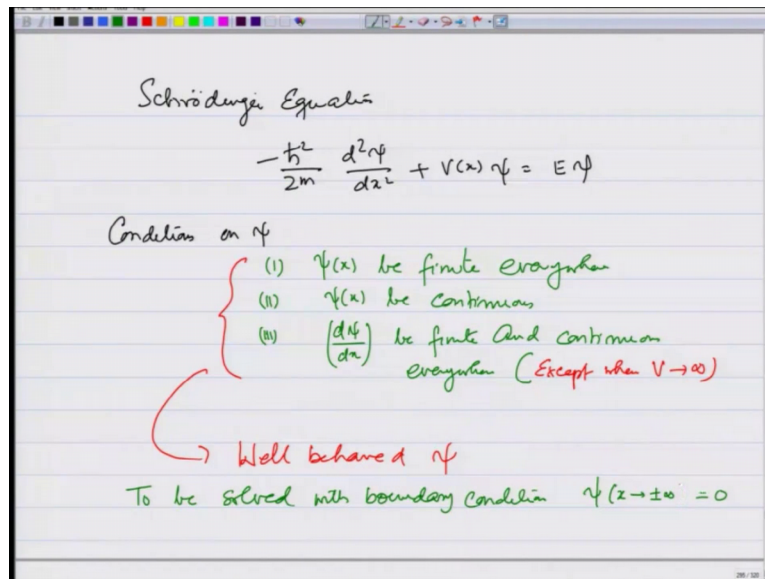 Schrödinger Equation
-ħ²/2m d²ψ/dx² + V(x) ψ = E ψ
Conditions on ψ
(I) ψ(x) be finite everywhere
(II) ψ(x) be continuous
(III) (dψ/dx) be finite and continuous
everywhere (Except when V→∞)
Well behaved ψ
To be solved with boundary condition ψ(x→±∞ = 0